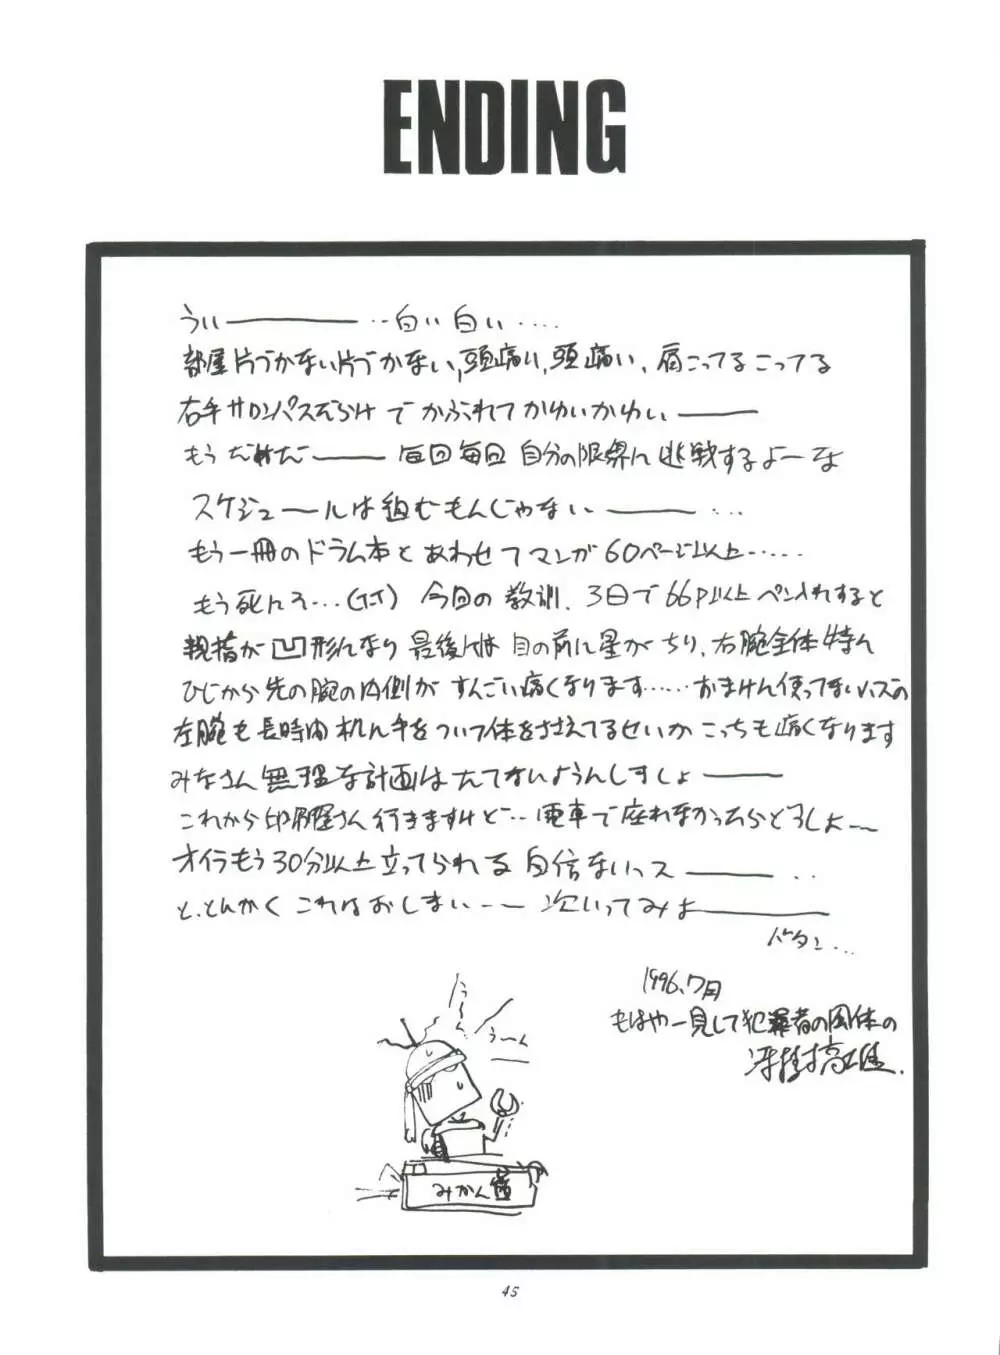 ENDING
うぃ――――‥白い白い‥‥
部屋片づかない片づかない,頭痛い,頭痛い、肩こってるこってる
右手サロンパスだらけでかぶれてかゆいかゆい――
もうだめだ――毎回毎回自分の限界に挑戦するよーな
スケジュールは組むもんじゃない――‥‥
もう一冊のドラム本とあわせてマンガ60ページ以上‥‥‥
もう死んそ…(TT) 今回の教訓、3日で66P以上ペン入れすると
親指が凹形になり最後には目の前に星がちり、右腕全体特に
ひじから先の腕の内側がすんごい痛くなります……おまけに使ってないハズの
左腕も長時間机に手をついて体をささえてるせいかこっちも痛くなります
みなさん無理な計画はたてないようにしましょ――
これから印刷屋さん行きますけど‥電車で座れなかったらどうしよ~~
オイラもう30分以上立ってられる自信ないっス――‥
と、とにかくこれはおしまい~~次いってみよ――――
バタン…
1996、7月
もはや一見して犯罪者の風体の
冴樹高雄.
う~~ん
う~ん
みかん箱
45